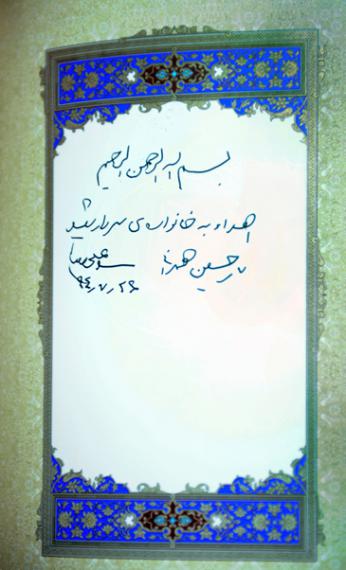 بسم الله الرحمن الرحیم
اهداء به خانواده‌ی سردار شهید
حسین همدانی سید علی خامنه‌ای
۹۴٫۷٫۲۶